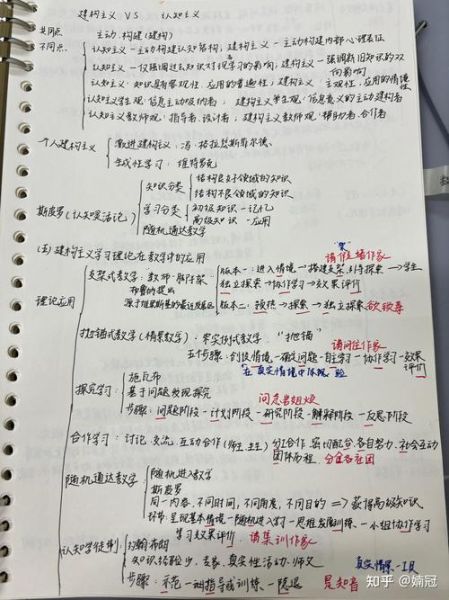 建构主义 VS 认知主义
共同点 主动构建(建构)
不同点: 认知主义—主动构建认知结构; 建构主义—主动构建内部心理表征
认知主义—仅强调过去知识对现学习的影响; 建构主义—强调新旧知识的双向影响
认知主义: 知识具有客观性, 应用的普遍性; 建构主义: 主观性, 应用的情境性
认知主义学生观: 信息主动吸纳者; 建构主义学生观: 信息意义的主动建构者
认知主义教师观: 指导者、设计者; 建构主义教师观: 帮助者、合作者
个人建构主义 激进建构主义: 冯·格拉塞斯菲尔德
生成性学习: 维特罗克
知识分类 结构良好领域的知识
结构不良领域的知识
斯皮罗(认知灵活论) 学习分类 初级知识—记忆
高级知识—应用
随机通达教学
(五)建构主义学习理论在教学中的应用
支架式教学: 教师·脚手架
布鲁纳提出
源于维果斯基的最近发展区
版本一: 进入情境→搭建支架,引导探索→学生
独立探索→协作学习→效果评价
版本二: 预热→探索→独立探索
理论应用
抛锚式教学(情景教学): 实例式教学 "抛锚"
五个步骤: 创设情境—确定问题—自主学习—协作学习—效果评价
在真实情境中体验
探究学习: 施瓦布
基于问题发现探究
步骤: 问题阶段—计划阶段—研究阶段—解释阶段—反思阶段
合作学习: 讨论、交流、互动合作(师生、生生) 分工合作、密切配合、各自努力、社会互动
团体历程
随机通达教学 随机进入教学
斯皮罗
同一内容、不同时间、不同角度、不同目的 => 获得高级知识
环节: 呈现基本情境—随机进入学习—思维发展训练—小组协作学习
学习效果评价
认知学徒制
步骤: 示范—训练—隐退
真实情景—工具
知乎 @婻冠